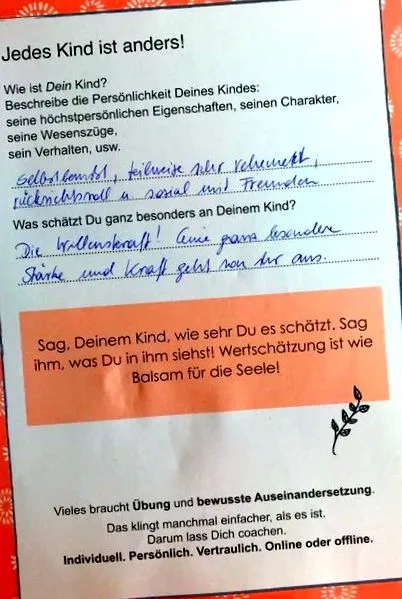 Jedes Kind ist anders!
Wie ist Dein Kind?
Beschreibe die Persönlichkeit Deines Kindes:
seine höchstpersönlichen Eigenschaften, seinen Charakter,
seine Wesenszüge,
sein Verhalten, usw.
selbstbewusst, teilweise sehr vehement,
rücksichtsvoll u sozial mit Freunden
Was schätzt Du ganz besonders an Deinem Kind?
Die Willenskraft! Eine ganz besondere
Stärke und Kraft geht von ihr aus.
Sag, Deinem Kind, wie sehr Du es schätzt. Sag
ihm, was Du in ihm siehst! Wertschätzung ist wie
Balsam für die Seele!
Vieles braucht Übung und bewusste Auseinandersetzung.
Das klingt manchmal einfacher, als es ist.
Darum lass Dich coachen.
Individuell. Persönlich. Vertraulich. Online oder offline.